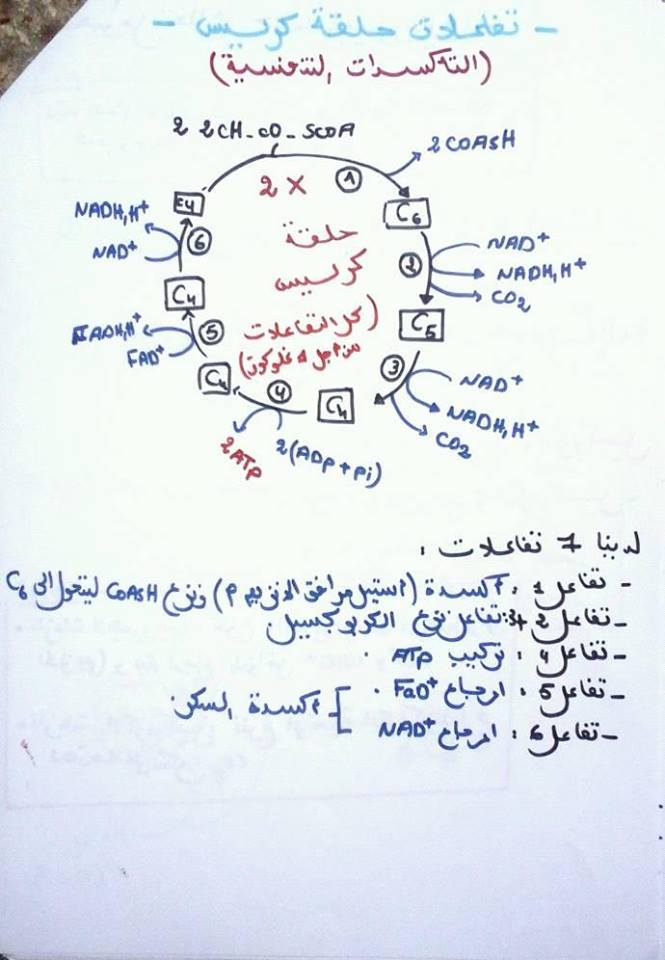 - تفاعلات حلقة كريبس -
(التأكسدات التنفسية)
2 2CH-CO-SCOA
2 COASH
2 X
1
C6
حلقة
كريبس
(كل التفاعلات
من أجل 1 غلوكوز)
2
NAD+
NADH,H+
CO2
C5
3
NAD+
NADH,H+
CO2
C4
4
2(ADP+Pi)
2ATP
C4
5
FAD+
C4
6
NAD+
NADH,H+
لدينا 7 تفاعلات :
- تفاعل 1 : أكسدة (أستيل مرافق الانزيم A) ونزع COASH ليتحول إلى C6
- تفاعل 2+3: تفاعل نزع الكربوكسيل
- تفاعل 4 : تركيب ATP .
- تفاعل 5 : ارجاع FaD+ .
أكسدة السكر.
- تفاعل 6 : ارجاع NAD+